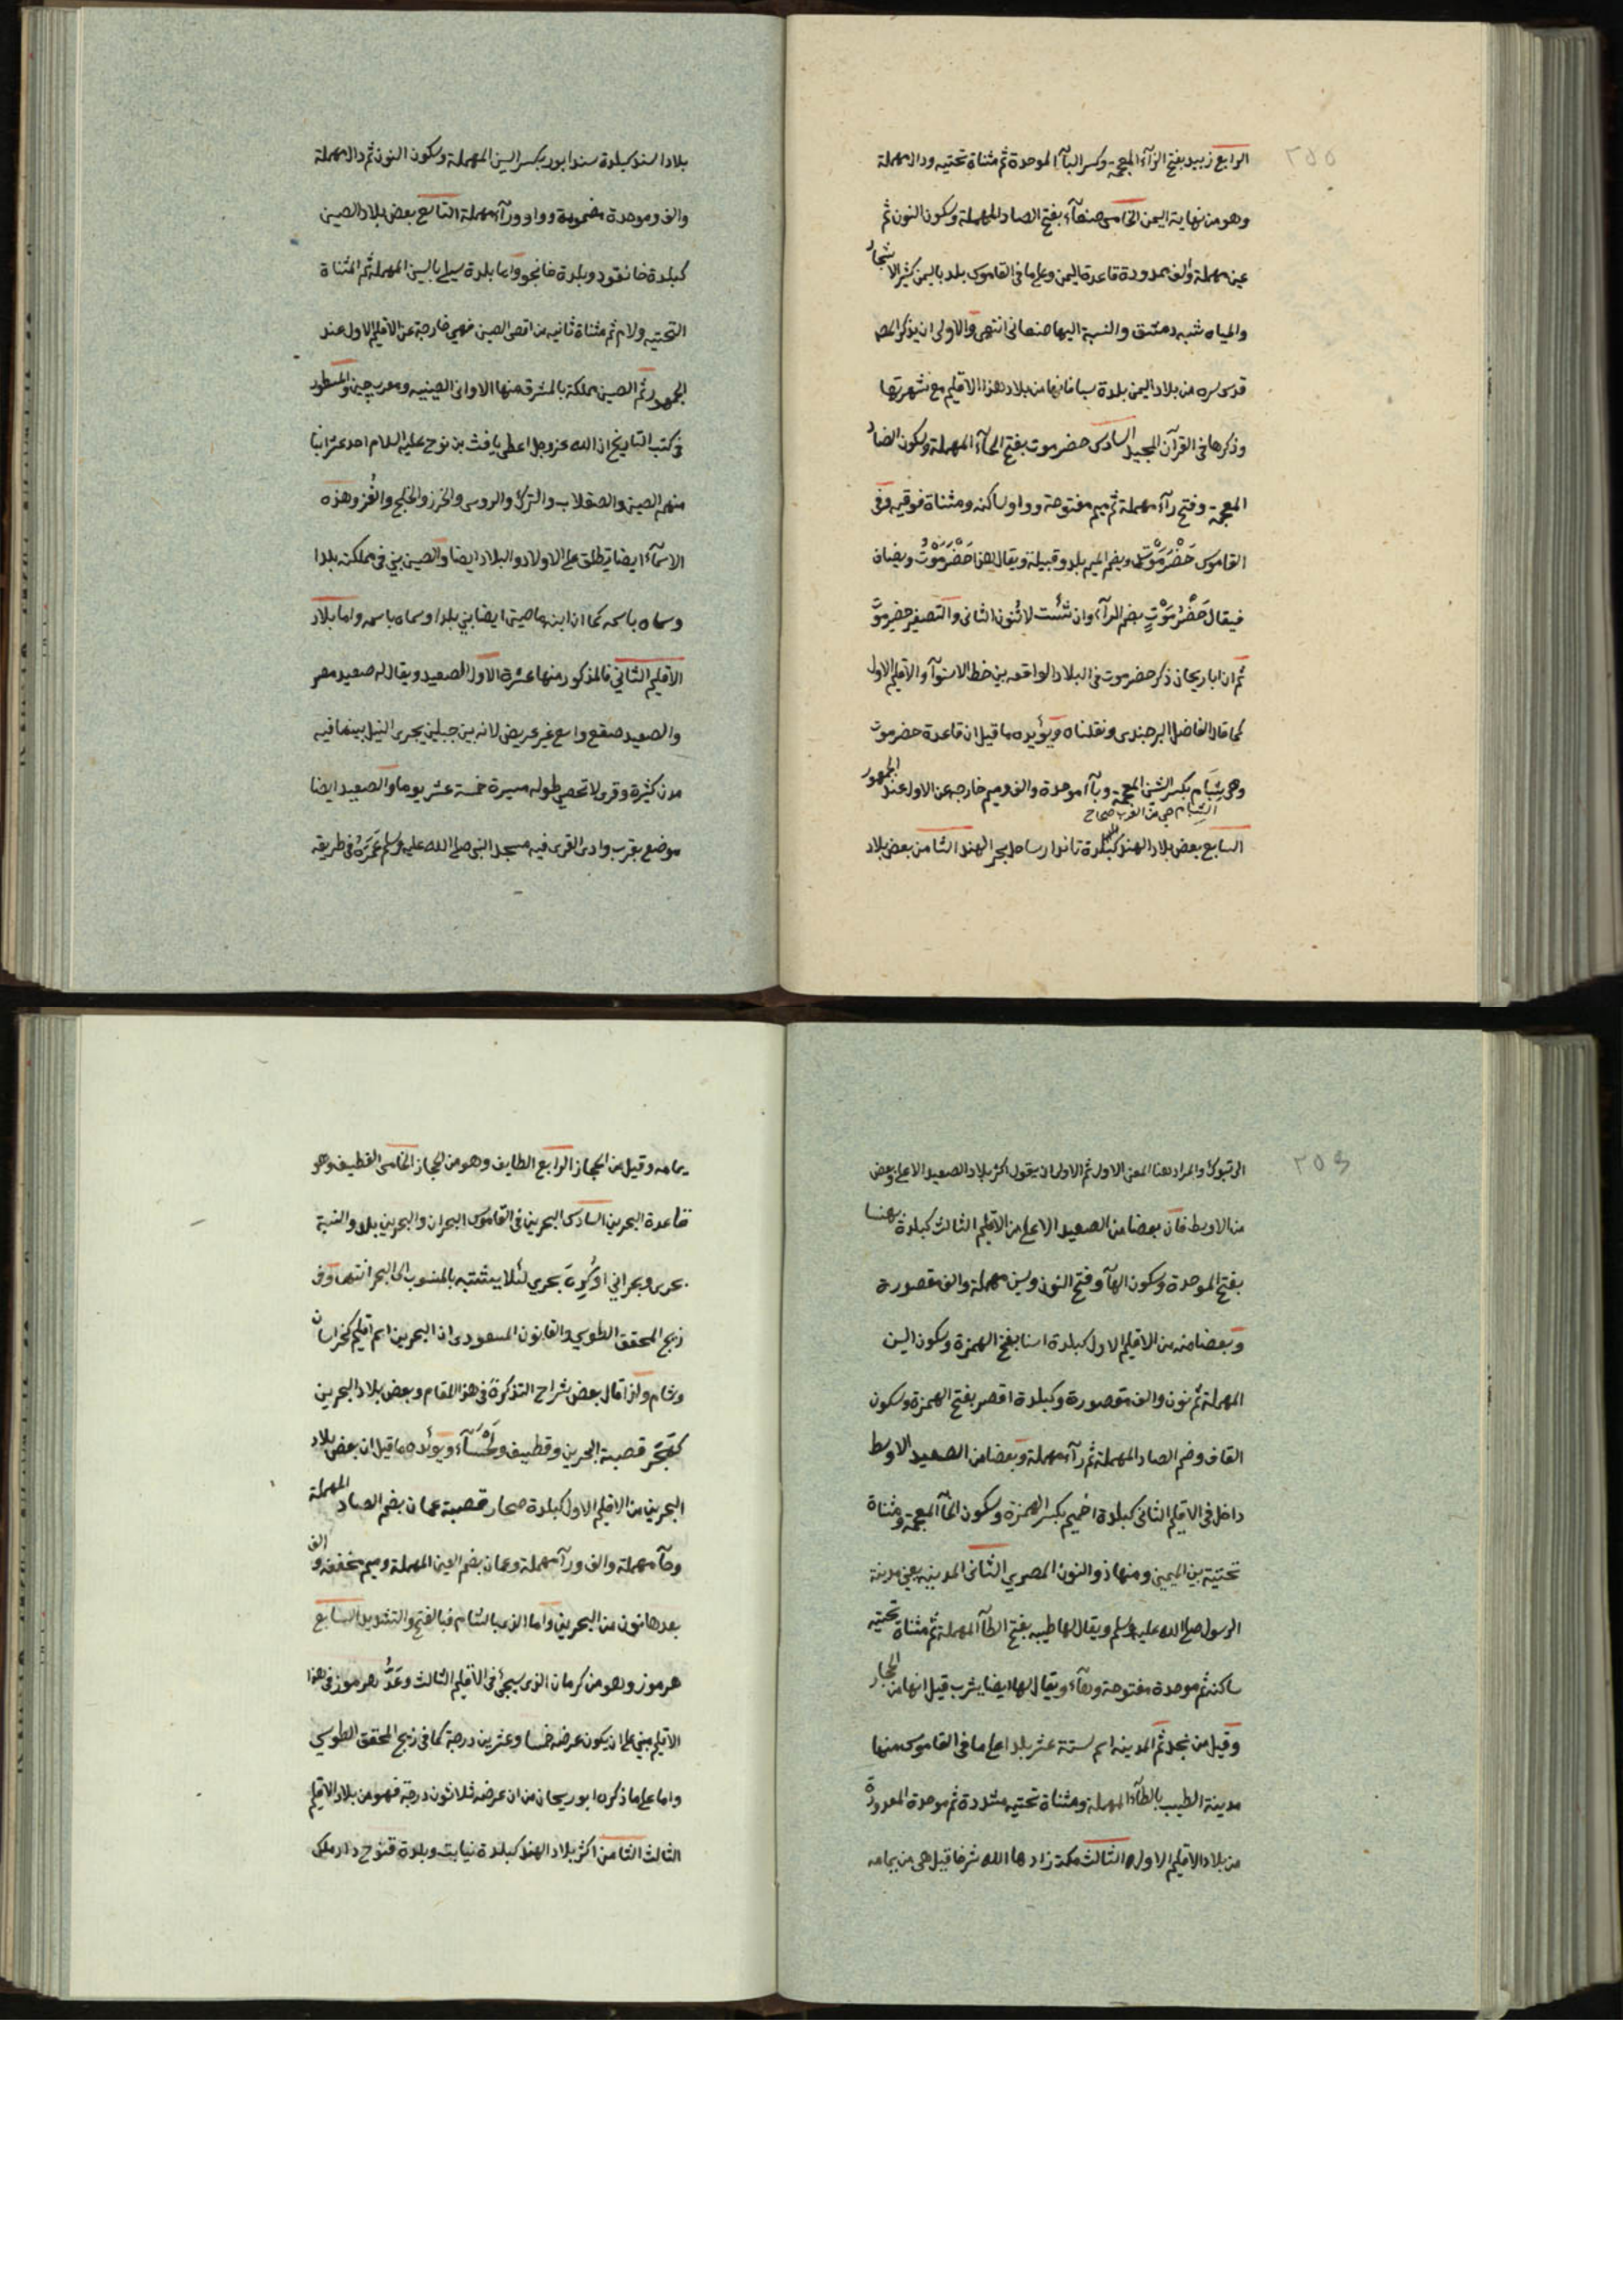 ٢٥٥
الرابع زبيد بفتح الزآء المعجمة وكسر البآء الموحدة ثم مثناة تحتيه ودال مهملة
وهو من نهاية اليمن الخامس صنعآء بفتح الصاد المهملة وسكون النون ثم
عين مهملة والف ممدودة قاعدة اليمن وعلى ما فى القاموس بلد باليمن كثير الاشجار
والمياه شبه دمشق والنسبة اليها صنعانى انتهى والاولى ان يذكر المص
قدس سره من بلاد اليمن بلدة سبا فانها من بلاد هذا الاقليم مع شهرتها
وذكرها فى القرآن المجيد السادس حضرموت بفتح الحآء المهملة وسكون الضاد
المعجمة وفتح رآء مهملة ثم ميم مفتوحة وواو ساكنه ومثناة فوقيه وفى
القاموس حَضْرَمَوْت وبضم الميم بلد وقبيلة ويقال هذا حَضْرَمَوْتُ ويضاف
فيقال حَضْرُمَوْتٍ بضم الرآء وان شئت لا تُنون الثانى والتصغير حضيرموت
ثم ان ابا ريحان ذكر حضرموت فى البلاد الواقعه بين خط الاستوآء والاقليم الاول
كما قال الفاضل البرجندى ونقلناه ويؤيده ما قيل ان قاعدة حضرموت
وهى شِبَام بكسر الشين المعجمة وبآء موحدة والف وميم خارجه عن الاول عند الجمهور
الشبام حي من العرب صحاح
السابع بعض بلاد الهند كبلدة تاندا رساحل بحر الهند الثامن بعض بلاد
بلاد السند كبلدة سندابور بكسر السين المهملة وسكون النون ثم دال مهملة
والف وموحدة مضمومة وواو ورآء مهملة التاسع بعض بلاد الصين
كبلدة خانقود وبلدة خانجو واما بلدة سيلى بالسين المهملة ثم المثناة
التحتيه ولام ثم مثناة ثانيه من اقصى الصين فهى خارجة عن الاقليم الاول عند
الجمهور ثم الصين مملكة بالمشرق منها الاوانى الصينيه ومعرب چين والمسطور
فى كتب التاريخ ان الله عز وجل اعطى يافث بن نوح عليه السلام احد عشر ابنا
منهم الصين والصقلاب والترك والروس والخزر والخلج والغُز وهذه
الاسمآء ايضا تطلق على الاولاد والبلاد ايضا والصين بنى فى مملكته بلدا
وسماه باسمه كما ان ابنه ماصين ايضا بنى بلدا وسماه باسمه واما بلاد
الاقليم الثانى فالمذكور منها عشرة الاول الصعيد ويقال له صعيد مصر
والصعيد صقع واسع غير عريض لانه بين جبلين يجرى النيل بينهما فيه
مدن كثيرة وقرى لا تحصى طوله مسيرة خمسة عشر يوما والصعيد ايضا
موضع بقرب وادى القرى فيه مسجد النبى صلى الله عليه وسلم عَمَّرَهُ فى طريقه
الى تبوك والمراد هنا المعنى الاول ثم الاولى ان يقول اكثر بلاد الصعيد الاعلى وبعض
من الاوسط فان بعضا من الصعيد الاعلى من الاقليم الثالث كبلدة بهنسا
بفتح الموحدة وسكون الهآء وفتح النون وسين مهملة والف مقصورة
وبعضا منه من الاقليم الاول كبلدة اسنا بفتح الهمزة وسكون السين
المهملة ثم نون والف مقصورة وكبلدة اقصر بفتح الهمزة وسكون
القاف وضم الصاد المهملة ثم رآء مهملة وبعضا من الصعيد الاوسط
داخل فى الاقليم الثانى كبلدة اخميم بكسر الهمزة وسكون الخآء المعجمة ومثناة
تحتية بين الميمين ومنها ذو النون المصرى الثانى المدينه يعنى مدينة
الرسول صلى الله عليه وسلم ويقال لها طيبه بفتح الطآء المهملة ثم مثناة تحتيه
ساكنة ثم موحدة مفتوحة وهآء ويقال لها ايضا يثرب قيل انها من الحجاز
وقيل من نجد ثم المدينه اسم لستة عشر بلدا على ما فى القاموس منها
مدينة الطيب بالطآء المهملة ومثناة تحتيه مشددة ثم موحدة المعدودة
من بلاد الاقليم الاول الثالث مكة زادها الله شرفا قيل هى من يمامه
يمامه وقيل من الحجاز الرابع الطايف وهو من الحجاز الخامس القطيف وهو
قاعدة البحرين السادس البحرين فى القاموس البحران والبحرين بلد والنسبة
بحرى وبحرانى او كُرِهَ بحرى لئلا يشتبه بالمنسوب الى البحر انتهى وفى
زيج المحقق الطوسى والقانون المسعودى ان البحرين اسم اقليم كخراسان
وشام ولذا قال بعض شراح التذكرة فى هذا المقام وبعض بلاد البحرين
كهَجَر قصبة البحرين وقطيف ولَحْسَآء ويؤيده ما قيل ان بعض بلاد
البحرين من الاقليم الاول كبلدة صحار قصبة عمان بضم الصاد المهملة
وحآء مهملة والف ورآء مهملة وعمان بضم العين المهملة وميم مخففه والف
بعدها نون من البحرين واما الذى بالشام فبالفتح والتشديد السابع
هرموز وهو من كرمان الذى سيجئ فى الاقليم الثالث وعَدُّ هرموز فى هذا
الاقليم مبنى على ان يكون عرضه خمسا وعشرين درجة كما فى زيج المحقق الطوسى
واما على ما ذكره ابو ريحان من ان عرضه ثلاثون درجة فهو من بلاد الاقليم
الثالث الثامن اكثر بلاد الهند كبلدة نيابت وبلدة قنوح دار ملك